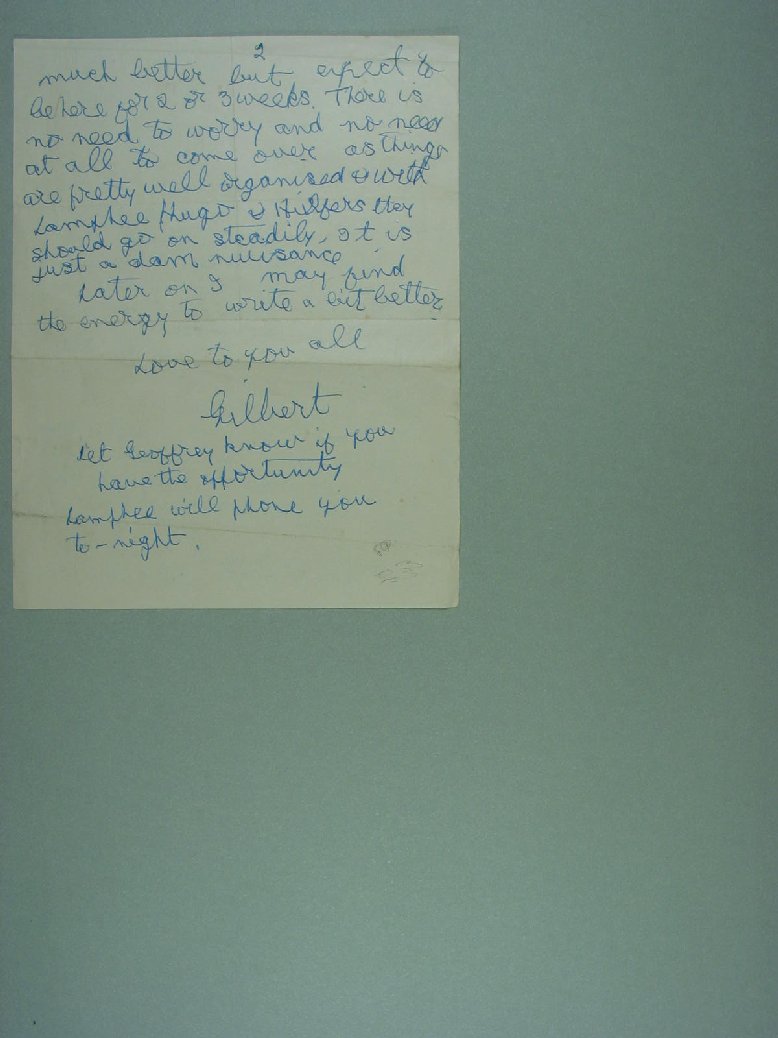 2
much better but expect to
be here for 2 or 3 weeks. There is
no need to worry and no need
at all to come over as things
are pretty well organised & with
Lamphee Hugo & they
should go on steadily. It is
just a dam nuisance
Later on I may find
the energy to write a bit better.
Love to you all
Gilbert
Let Geoffrey know if you
have the opportunity
Lamphee will phone you
to-night.